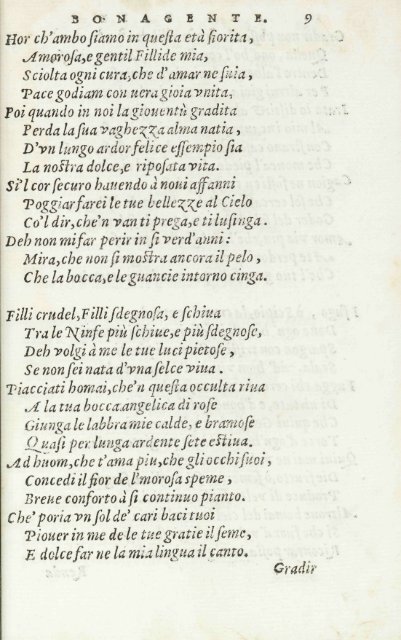 BONAGENTE. 9
Hor ch'ambo siamo in questa età fiorita,
Amorosa, e gentil Fillide mia,
Sciolta ogni cura, che d'amar ne suia,
Pace godiam con uera gioia vnita,
Poi quando in noi la giouentù gradita
Perda la sua vaghezza alma natia,
D'vn lungo ardor felice essempio sia
La nostra dolce, e riposata vita.
Si'l cor securo hauendo à noui affanni
Poggiar farei le tue bellezze al Cielo
Co'l dir, che'n van ti prega, e ti lusinga.
Deh non mi far perir in si verd'anni:
Mira, che non si mostra ancora il pelo,
Che la bocca, e le guancie intorno cinga.
Filli crudel, Filli sdegnosa, e schiua
Tra le Ninfe più schiue, e più sdegnose,
Deh volgi à me le tue luci pietose,
Se non sei nata d'vna selce viua.
Piacciati homai, che'n questa occulta riua
A la tua bocca angelica di rose
Giunga le labbra mie calde, e bramose
Quasi per lunga ardente sete estiua.
Ad huom, che t'ama piu, che gli occhi suoi,
Concedi il fior de l'morosa speme,
Breue conforto à si continuo pianto.
Che' poria vn sol de' cari baci tuoi
Piouer in me de le tue gratie il seme,
E dolce far ne la mia lingua il canto.
Gradir